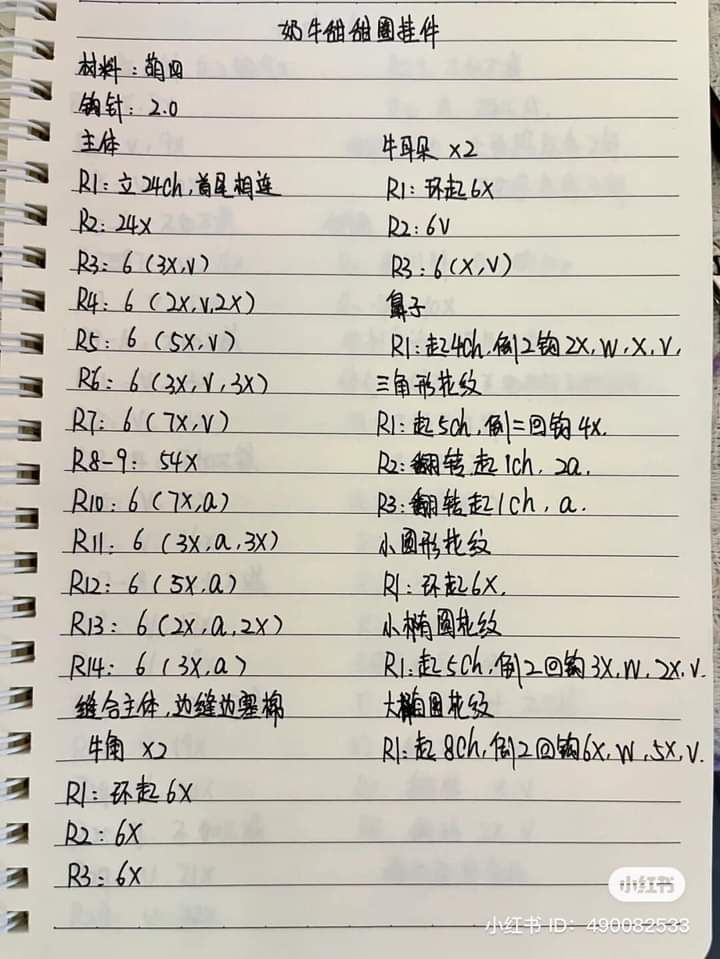 奶牛甜甜圈挂件
材料：萌四
钩针：2.0
主体
R1：立24ch，首尾相连
R2：24X
R3：6（3X，V）
R4：6（2X，V，2X）
R5：6（5X，V）
R6：6（3X，V，3X）
R7：6（7X，V）
R8-9：54X
R10：6（7X，A）
R11：6（3X，A，3X）
R12：6（5X，A）
R13：6（2X，A，2X）
R14：6（3X，A）
缝合主体，边缝边塞棉
牛角 X2
R1：环起6X
R2：6X
R3：6X
牛耳朵 X2
R1：环起6X
R2：6V
R3：6（X，V）
鼻子
R1：起4ch，倒2钩2X，W，X，V.
三角形花纹
R1：起5ch，倒二回钩4X.
R2：翻转起1ch，2A.
R3：翻转起1ch，A.
小圆形花纹
R1：环起6X.
小椭圆花纹
R1：起5ch，倒2回钩3X，W，2X，V.
大椭圆花纹
R1：起8ch，倒2回钩6X，W，5X，V.
小红书
小红书 ID：490082533